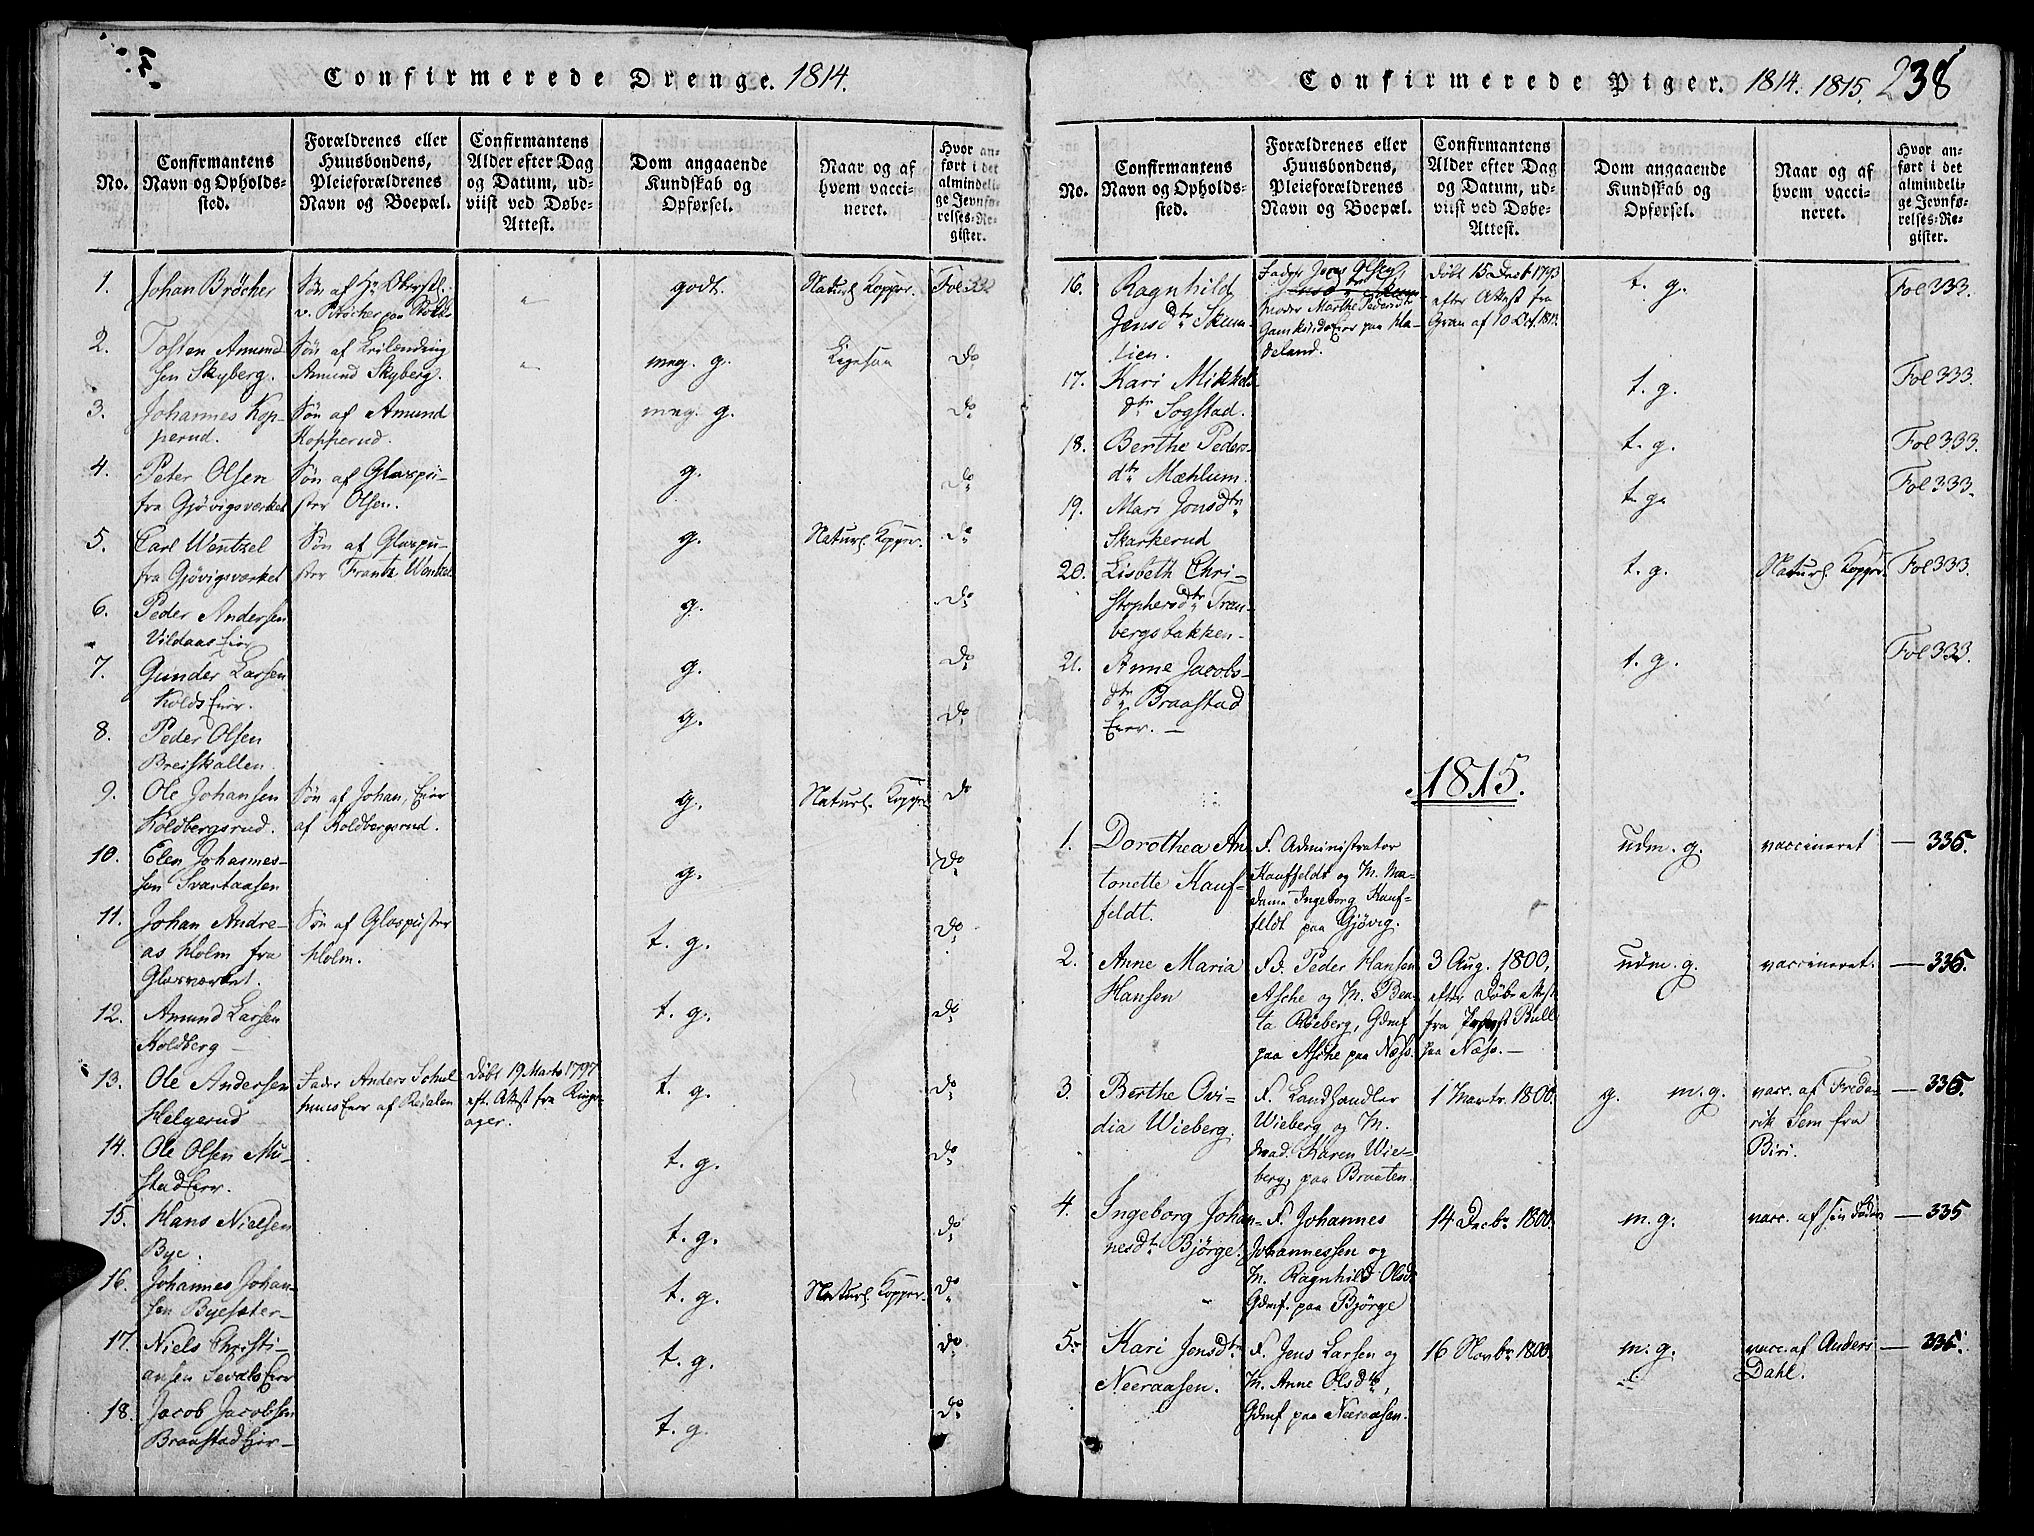 Confirmerede Drenge. 1814.
No.
Confirmantens
Navn og Opholds-
sted.
Forældrenes eller
Huusbondens,
Pleieforældrenes
Navn og Boepæl.
Confirmantens
Alder efter Dag
og Datum, ud-
viist ved Døbe-
Attest.
Dom angaaende
Kundskab og
Opførsel.
Naar og af
hvem vacci-
neret.
Hvor an-
ført i det
almindeli-
ge Jevnfø-
relses-Re-
gister.
1.
Johan Bröcher
Søn af
v. Bröcher paa
godt.
Naturl. Kopper.
Fol 332
2.
Tosten Amund-
sen Skyberg.
Søn af
Amund Skyberg.
meg. g.
Ligesaa
do
3.
Johannes Kop-
perud.
Søn af Amund
Kopperud.
meg. g.
do
4.
Peter Olsen
fra Gjövigsverket
Søn af Glaspü-
ster Olsen.
g.
do
5.
Carl Wentzel
fra Gjövigsværket
Søn af Glaspu-
ster Frantz Wentzel
g.
Naturl. Kopper.
do
6.
Peder Andersen
Vildaas Eier
g.
do
7.
Gunder Larsen
Kolds Eier.
g.
do
8.
Peder Olsen
Breiskallen.
g.
do
9.
Ole Johansen
Koldbergsrud.
Søn af Johan, Eier
af Koldbergsrud.
g.
Naturl. Kopper
do
10.
Elen Johannes-
sen Svartaasen
g.
do
11.
Johan Andre-
as Holm fra
Glasværket.
Søn af Glaspuster
Holm.
t. g.
do
12.
Amund Larsen
Koldberg
t. g.
do
13.
Ole Andersen
Helgerud
Fader Anders
Eier af Redalen
Døbt 19 Marts 1797
eft. Attest fra Ringe-
ager.
t. g.
do
14.
Ole Olsen Mu-
stad Eier.
t. g.
do
15.
Hans Nielsen
Bye.
t. g.
do
16.
Johannes Johan-
sen Byesæter
t. g.
Naturl. Kopper.
do
17.
Niels Christi-
ansen Sevals Eier
t. g.
do
18.
Jacob Jacobsen
Braastad Eier
t. g.
do
Confirmerede Piger. 1814. 1815. 238
No.
Confirmantens
Navn og Opholds-
sted.
Forældrenes eller
Huusbondens,
Pleieforældrenes
Navn og Boepæl.
Confirmantens
Alder efter Dag
og Datum, ud-
viist ved Døbe-
Attest.
Dom angaaende
Kundskab og
Opførsel.
Naar og af
hvem vacci-
neret.
Hvor an-
ført i det
almindeli-
ge Jevnfø-
relses-Re-
gister.
16.
Ragnhild
Jensdtr Skum-
lien.
Fader Jens Olsen,
Moder Marthe Pedersdtr
Eier paa Ha-
deland.
Døbt 15 Decb 1793
efter Attest fra
Gran af 10 Oct. 1813
t. g.
Fol 333.
17.
Kari Mikkels-
dtr Sogstad.
t. g.
Fol 333.
18.
Berthe Peders-
dtr Mæhlum.
t. g.
Fol 333.
19.
Mari Jonsdtr
Skarkerud
t. g.
Fol 333.
20.
Lisbeth Chri-
stophersdtr Tran-
bergsbakken
t. g.
Naturl. Kopper.
Fol 333.
21.
Anne Jacobs-
dtr Braastad
Eier. —
t. g.
Fol 333.
1815.
1.
Dorothea An-
tonette Kauf-
feldt.
F. Administrator
Kauffeldt og M. Ma-
dame Ingeborg Kauf-
feldt paa Gjövig.
udm. g.
vaccineret
— 335.
2.
Anne Maria
Hansen
Fd. Peder Hansen
Asche og M. Bea-
ta Röeberg, Gdmf
paa Asche paa Næss.
3 Aug. 1800,
efter Döbeattest
fra Provst Bull
paa Næss. —
udm. g.
vaccineret.
— 335.
3.
Berthe Ovi-
dia Wieberg.
F. Landhandler
Wieberg og M.
Mad. Karen Wie-
berg, paa Braaten.
1 Marts. 1800.
g. m. g.
vacc. af Frede-
rik Sem fra
Biri.
— 335
4.
Ingeborg Johan-
nesdtr Bjørge.
F. Johannes
Johannessen og
M. Ragnhild Olsdtr
Gdmf. paa Bjørge
14 Decbr 1800.
m. g.
vacc. af sin Fader
— 335
5.
Kari Jensdtr
Neeraasen.
F. Jens Larsen og
M. Anne Olsdtr,
Gdmf paa Neeraasen.
16 Novbr 1800.
m. g.
vacc. af Anders
Dahl.
— 335.